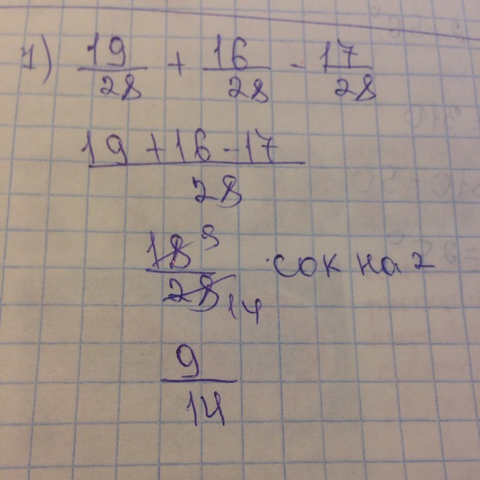 1) 19/28 + 16/28 - 17/28
19 + 16 - 17 / 28
18 9 / 28 14 сок на 2
9/14